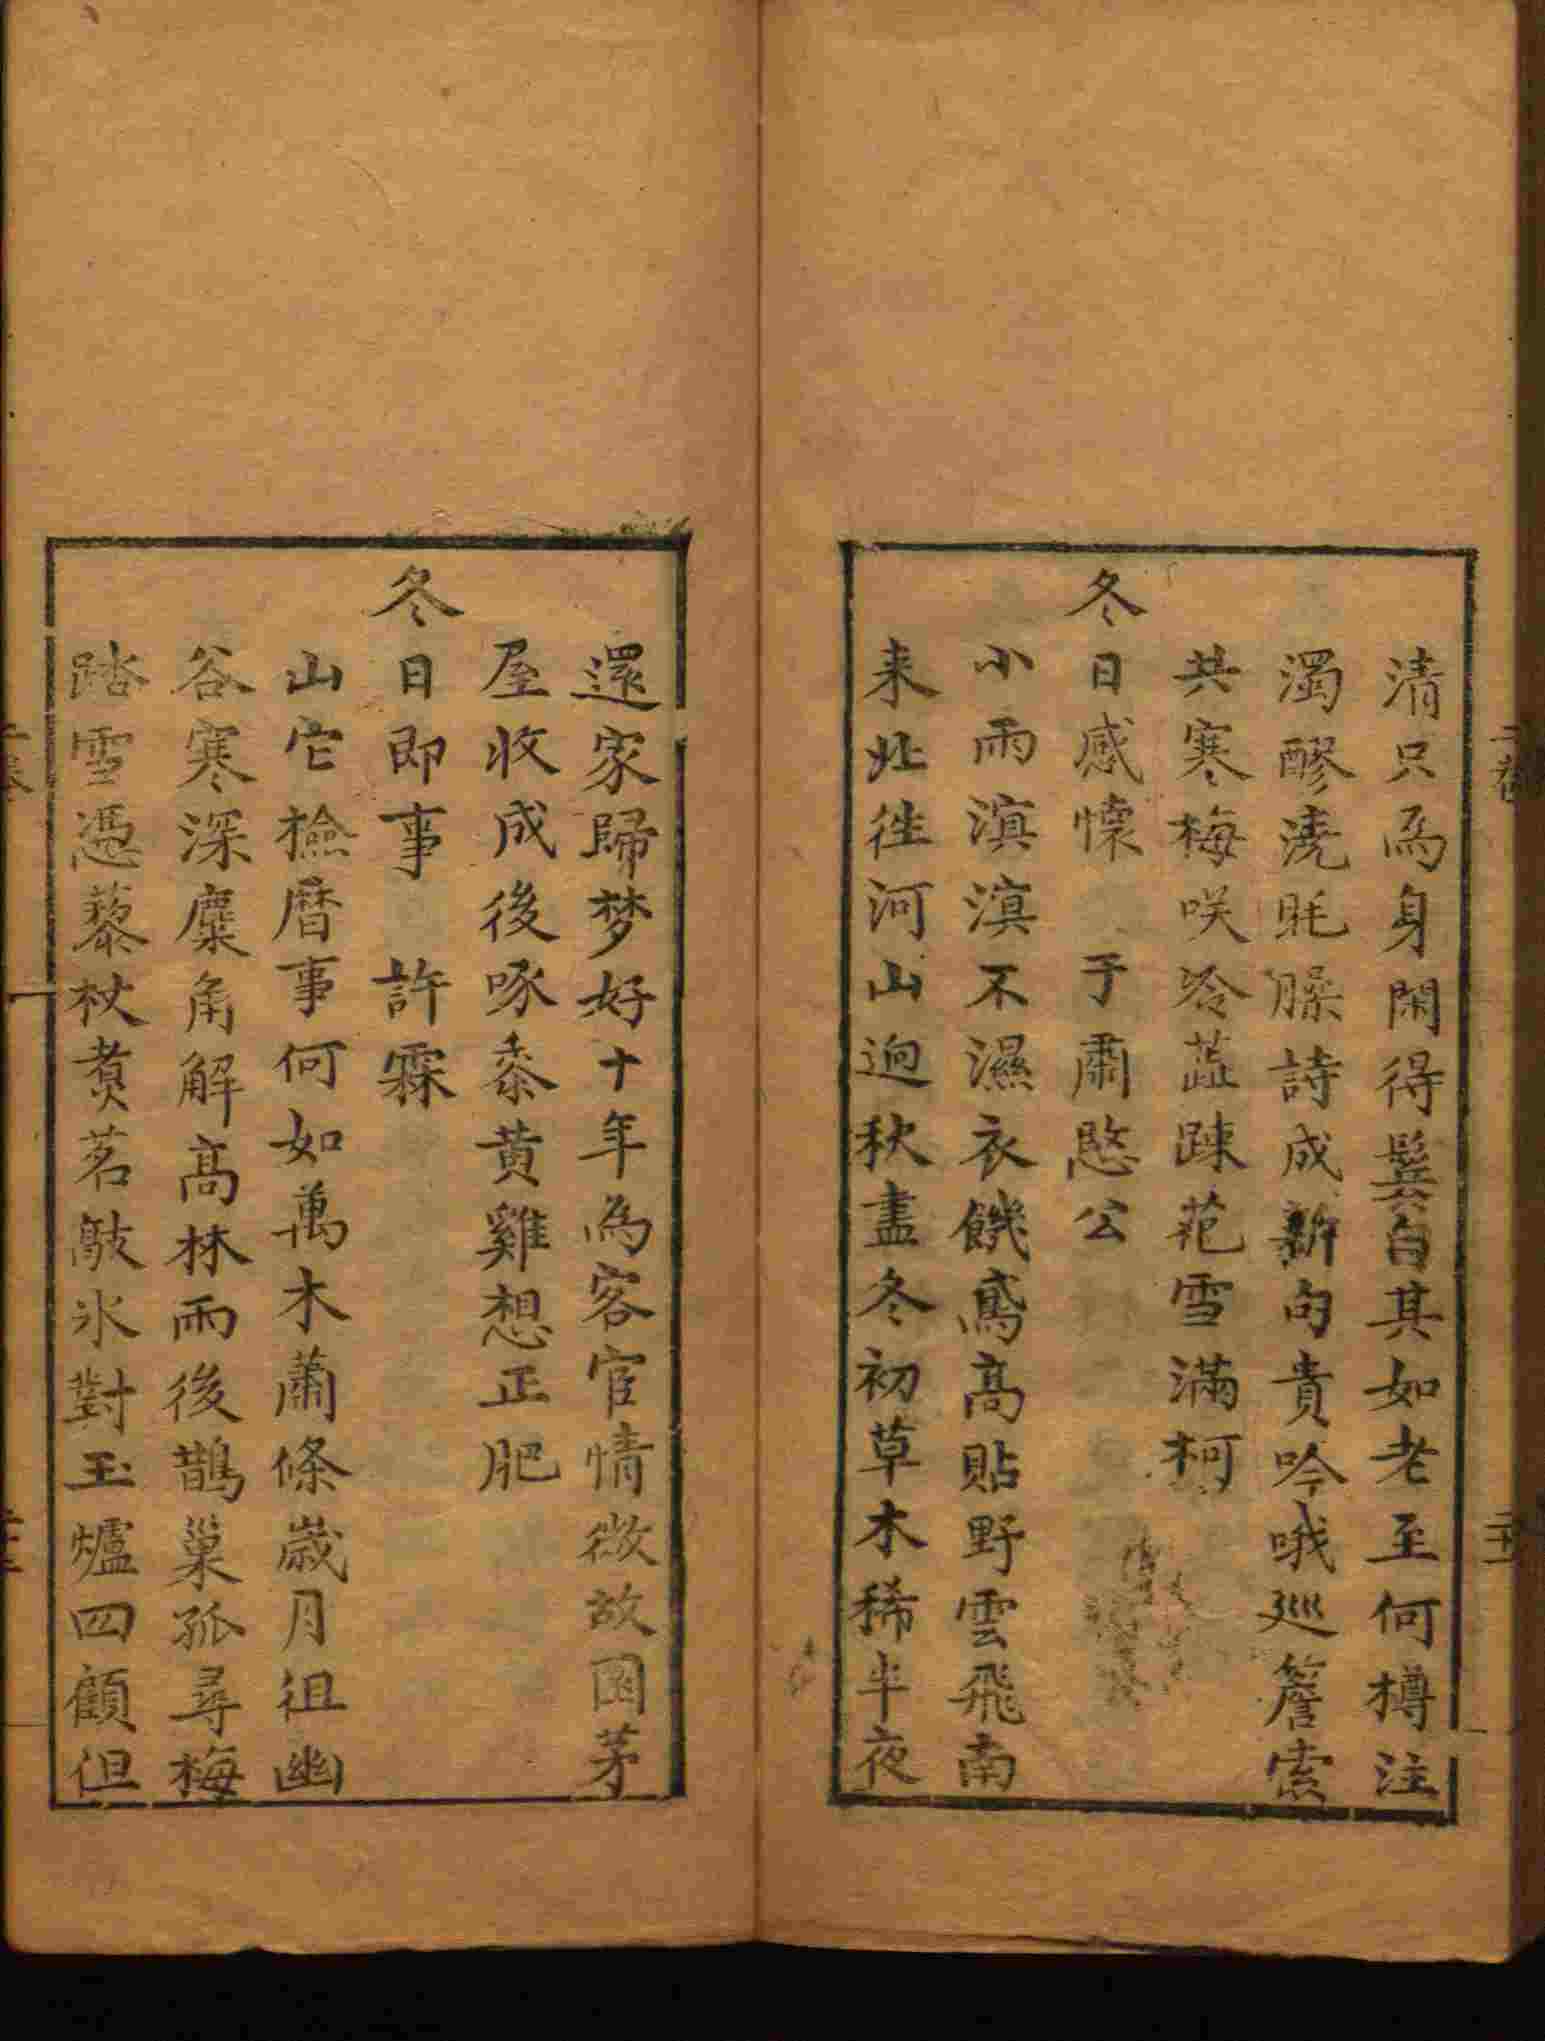 清只為身閑得鬂白其如老至何樽注
濁醪澆毷氉詩成新句貴吟哦巡簷索
共寒梅咲冷蕋踈葩雪滿柯
冬日感懷　于肅愍公
小雨滇滇不濕衣饑鳶高貼野雲飛南
来北徃河山逈秋盡冬初草木稀半夜
還家歸梦好十年為客宦情微故園茅
屋收成後啄黍黄雞想正肥
冬日即事　許霖
山它檢曆事何如萬木蕭條嵗月徂幽
谷寒深麋角解高林雨後鵲巢孤尋梅
踏雪憑藜杖煑茗敲氷對玉爐四顧但